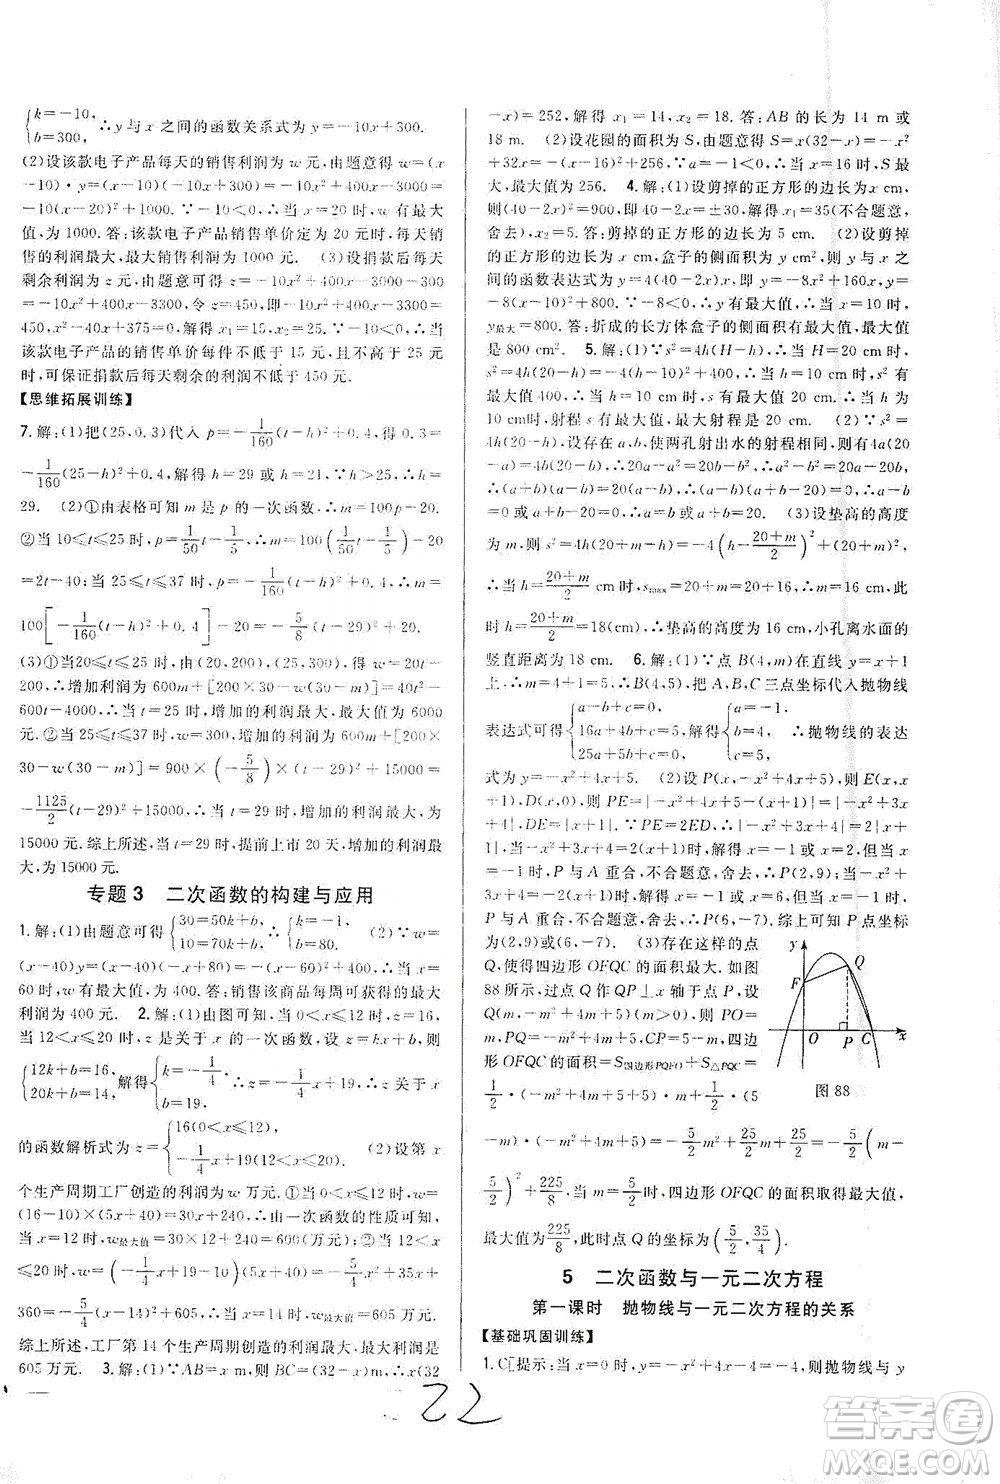 {k=-10, b=300, ∴y与x之间的函数关系式为y=-10x+300.
(2)设该款电子产品每天的销售利润为w元,由题意得w=(x
-10)·y=(x-10)(-10x+300)=-10x²+400x-3000=
-10(x-20)²+1000.∵-10<0,∴当x=20时,w有最大
值,为1000.答:该款电子产品销售单价定为20元时,每天销
售的利润最大,最大利润为1000元.  (3)设捐款后每天
剩余利润为z元,由题意可得z=-10x²+400x-3000-
300=-10x²+400x-3300,令z=450,即-10x²+400x-3300=
450,x²-40x+375=0.解得x₁=15,x₂=25.∵-10<0,∴当
该款电子产品的销售单价每件不低于15元,且不高于25元时,
可保证捐款后每天剩余的利润不低于450元.
【思维拓展训练】
7.解:(1)把(25,0.3)代入p=-1/160(t-h)²+0.4,得0.3=
-1/160(25-h)²+0.4,解得h=29或h=21.∵h>25,∴h=
29.  (2)①由表格可知m是p的一次函数,∴m=100p-20.
②当10≤t≤25时,p=1/50t-1/5,∴m=100(1/50t-1/5)-20
=2t-40;当25≤t≤37时,p=-1/160(t-29)²+0.4.∴m=
100[-1/160(t-29)²+0.4]-20=-5/8(t-29)²+20.
(3)①当20≤t≤25时,由(20,200),(25,300),得w=20t-
200,∴增加利润为600m+[200×30-w(30-m)]=40t²-
600t-4000.∴当t=25时,增加的利润最大,最大值为6000
元.②当25≤t≤37时,w=300,增加的利润为600m+[200×
30-w(30-m)]=900×(-5/8)×(t-29)²+15000=
-1125/2(t-29)²+15000,∴当t=29时,增加的利润最大,为
15000元.综上所述,当t=29时,提前上市20天,增加的利润最
大,为15000元.
专题3 二次函数的构建与应用
1.解:(1)由题意可得{30=50k+b, 10=70k+b,∴{k=-1, b=80.  (2)∵w=
(x-40)y=(x-40)(-x+80)=-(x-60)²+400,∴当x=
60时,w有最大值,为400.答:销售该商品每周可获得的最大
利润为400元.  2.解:(1)由图可知,当0<x≤12时,z=16,
当12<x≤20时,z是关于x的一次函数,设z=kx+b.则
{12k+b=16, 20k+b=14,解得{k=-1/4, b=19, ∴z=-1/4x+19,∴z关于x
的函数解析式为z={16(0<x≤12), -1/4x+19(12<x≤20).  (2)设第x
个生产周期工厂创造的利润为w万元.①当0<x≤12时,w=
(16-10)×(5x+40)=30x+240,∴由一次函数的性质可知,
当x=12时,w最大值=30×12+240=600(万元);②当12<x
≤20时,w=(-1/4x+19-10)(5x+40)=-5/4x²+35x+
360=-5/4(x-14)²+605,∴当x=14时,w最大值=605万元.
综上所述,工厂第14个生产周期创造的利润最大,最大利润是
605万元.  3.解:(1)∵AB=x m,则BC=(32-x) m,∴x(32
-x)=252,解得x₁=14,x₂=18.答:AB的长为14 m或
18 m.  (2)设花园的面积为S,由题意得S=x(32-x)=-x²
+32x=-(x-16)²+256,∵a=-1<0,∴当x=16时,S最
大,最大值为256.  4.解:(1)设剪掉的正方形的边长为x cm,
则(40-2x)²=900,即40-2x=±30,解得x₁=35(不合题意,
舍去),x₂=5.答:剪掉的正方形的边长为5 cm.  (2)设剪掉
的正方形的边长为x cm,盒子的侧面积为y cm²,则y与x之
间的函数表达式为y=4(40-2x)x,即y=-8x²+160x=
-8(x-10)²+800.∵-8<0,∴y有最大值,∴当x=10时,
y最大=800.答:折成的长方体盒子的侧面积有最大值,最大值
是800 cm².  5.解:(1)∵s²=4h(H-h),∴当H=20 cm
时,s²=4h(20-h)=-4(h-10)²+400,∴当h=10 cm
时,射程s有最大值,最大射程为20 cm.  (2)∵s²=4h(20-
h),存在a,b,使两孔射出水的射程相同,则有4a(20
-a)=4b(20-b),∴20a-a²=20b-b²,∴a²-b²=20a-20b,
∴(a+b)(a-b)=20(a-b),∴(a-b)(a+b-20)=0,∴a-b=0
或a+b-20=0,∴a=b或a+b=20.  (3)设垫高的高度
为m,则s²=4h(20+m-h)=-4(h-(20+m)/2)²+(20+m)²,
∴当h=(20+m)/2时,smax=20+m=20+16,∴m=16 cm,此
时h=(20+m)/2=18(cm)∴垫高的高度为16 cm,小孔离水面的
竖直距离为18 cm.  6.解:(1)∵点B(4,m)在直线y=x+1
上,∴m=4+1=5.∴B(4,5),把A,B,C三点坐标代入抛物线
表达式可得{a-b+c=0, 16a+4b+c=5, 25a+5b+c=0,解得{a=-1, b=4, c=5. ∴抛物线的表达
式为y=-x²+4x+5.  (2)设P(x,-x²+4x+5),则E(x,x
+1),D(x,0),则PE=|-x²+4x+5-(x+1)|=|-x²+3x
+4|,DE=|x+1|,∵PE=2ED,∴|-x²+3x+4|=2|x+
1|.当-x²+3x+4=2(x+1)时,解得x=-1或x=2,但当x=
-1时,P与A重合,不合题意,舍去,∴P(2,9);当-x²+3x
+4=-2(x+1)时,解得x=-1或x=6,但当x=-1时,
P与A重合,不合题意,舍去,∴P(6,-7).综上可知P点坐标
为(2,9)或(6,-7).  (3)存在这样的点
Q,使得四边形OFQC的面积最大.如图
88所示,过点Q作QP⊥x轴于点P,设
Q(m,-m²+4m+5)(m>0),则PO=
m,PQ=-m²+4m+5,CP=5-m,四边
形OFQC的面积=S四边形PQFO+S△PQC=
1/2×(-m²+4m+5+5)·m+1/2×(5
-m)×(-m²+4m+5)=-5/2m²+25/2m+25/2=-5/2(m-
5/2)²+225/8,当m=5/2时,四边形OFQC的面积取得最大值,
最大值为225/8,此时点Q的坐标为(5/2,35/4).
y
F
Q
O
P
C
x
图88
5 二次函数与一元二次方程
第一课时 抛物线与一元二次方程的关系
【基础巩固训练】
1.C[提示:当x=0时,y=-x²+4x-4=-4,则抛物线与y
22
答案卷
MXQE.COM